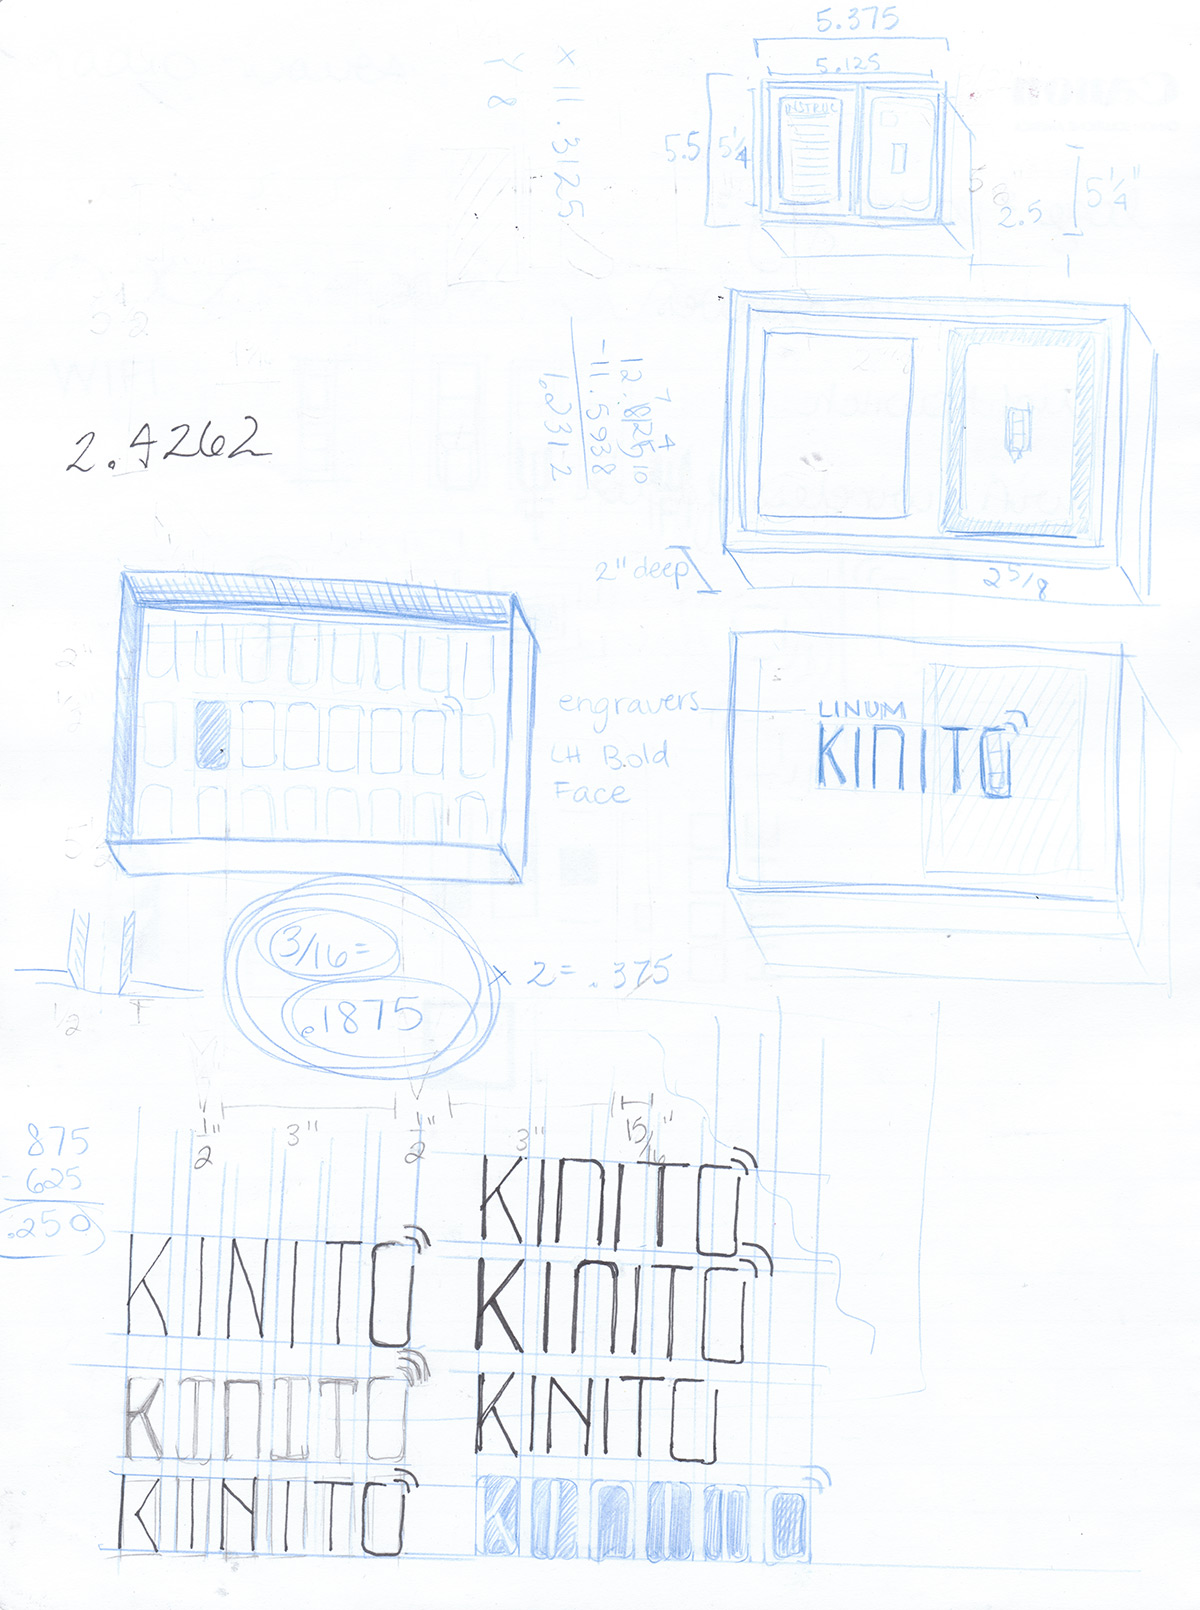 5.375
5.125
x 11.3125
Y 8
5.5
5 1/4
INSTRUC
2.5
5 1/4"
5 1/2
12.8125
-11.5938
1.2312
2.4262
2" deep
2 5/8
engravers
LH Bold
Face
LINUM
KINITO
3/16=
.1875
x 2 = .375
1/2
1/2"
3"
1/2"
3"
15/16"
875
- 625
.250
KINITO
KINITO
KINITO
KINITO
KINITO
KINITO
KINITO